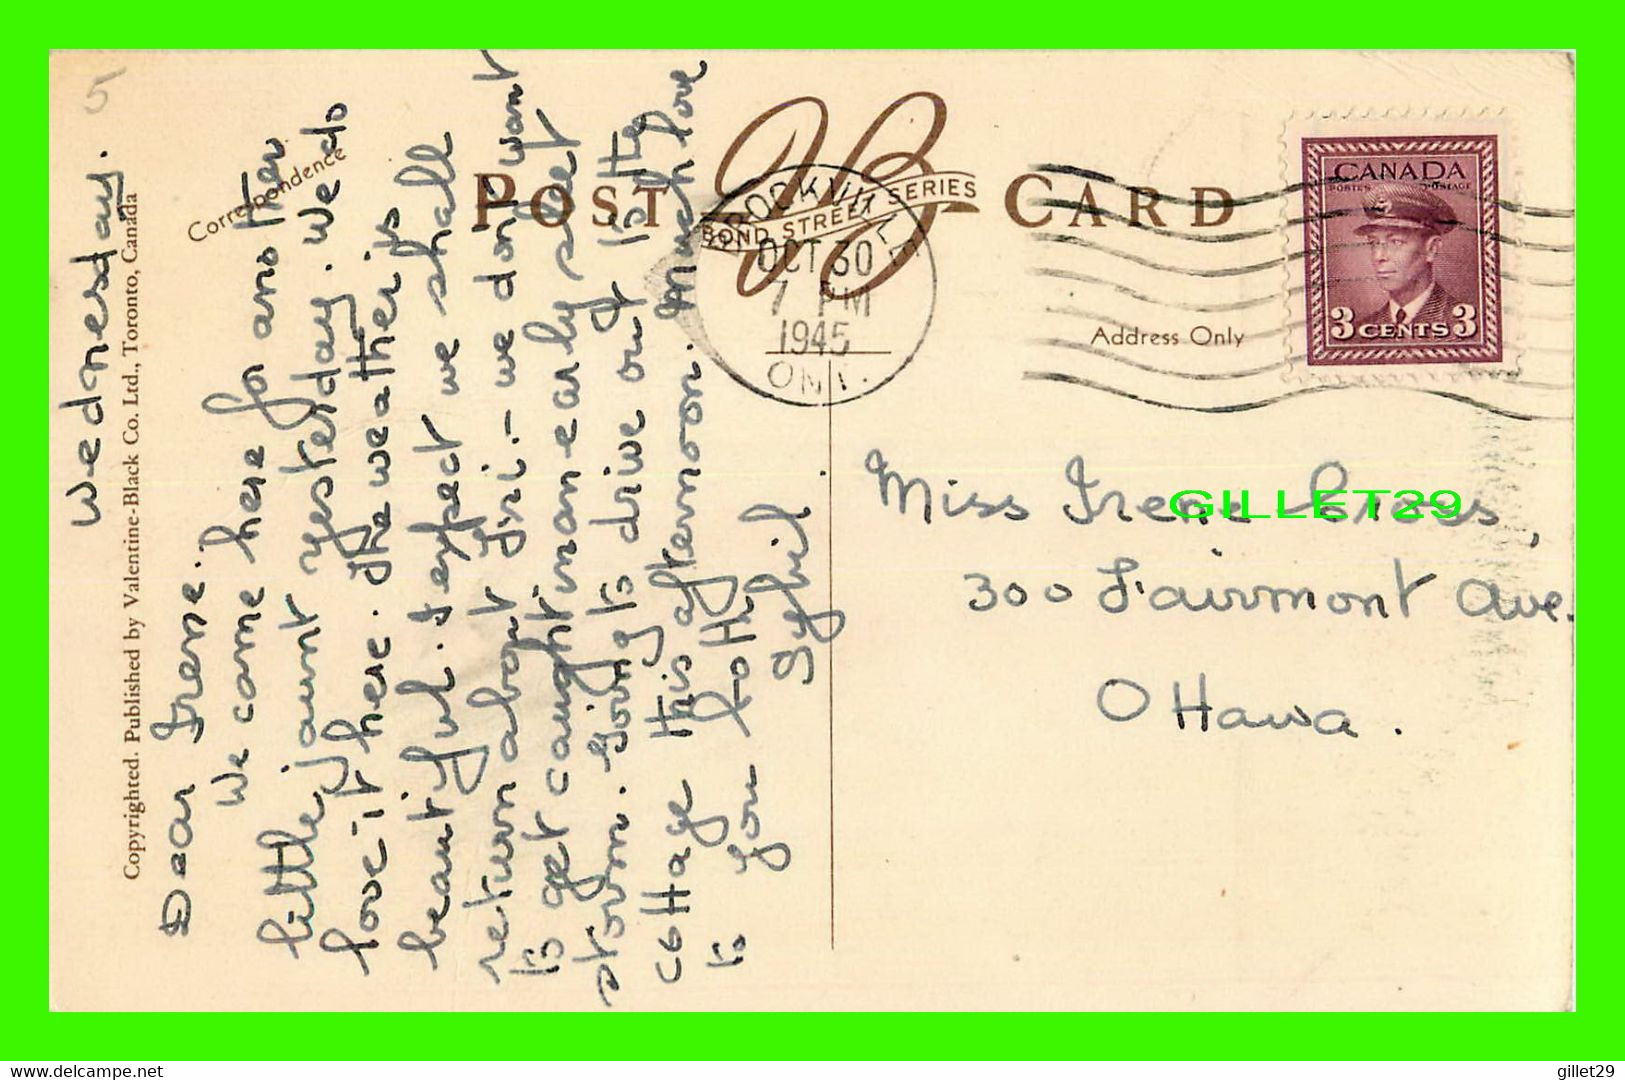 Wednesday.
Dear Irene.
We came here for another
little jaunt yesterday. We do
love it here. The weather is
beautiful. I expect we shall
return about Fri. - we don't want
to get caught in an early sleet
storm. Going to drive out to the
cottage this afternoon. Much love
to you both
Sybil.
5
Copyrighted. Published by Valentine-Black Co. Ltd., Toronto, Canada
Correspondence
POST CARD
VB
BOND STREET SERIES
BROCKVILLE
OCT 30
7 PM
1945
ONT.
CANADA
POSTES POSTAGE
3 CENTS 3
Address Only
Miss Irene Cross,
300 Fairmont Ave.
Ottawa.
GILLET29
Delcampe.net
gillet29